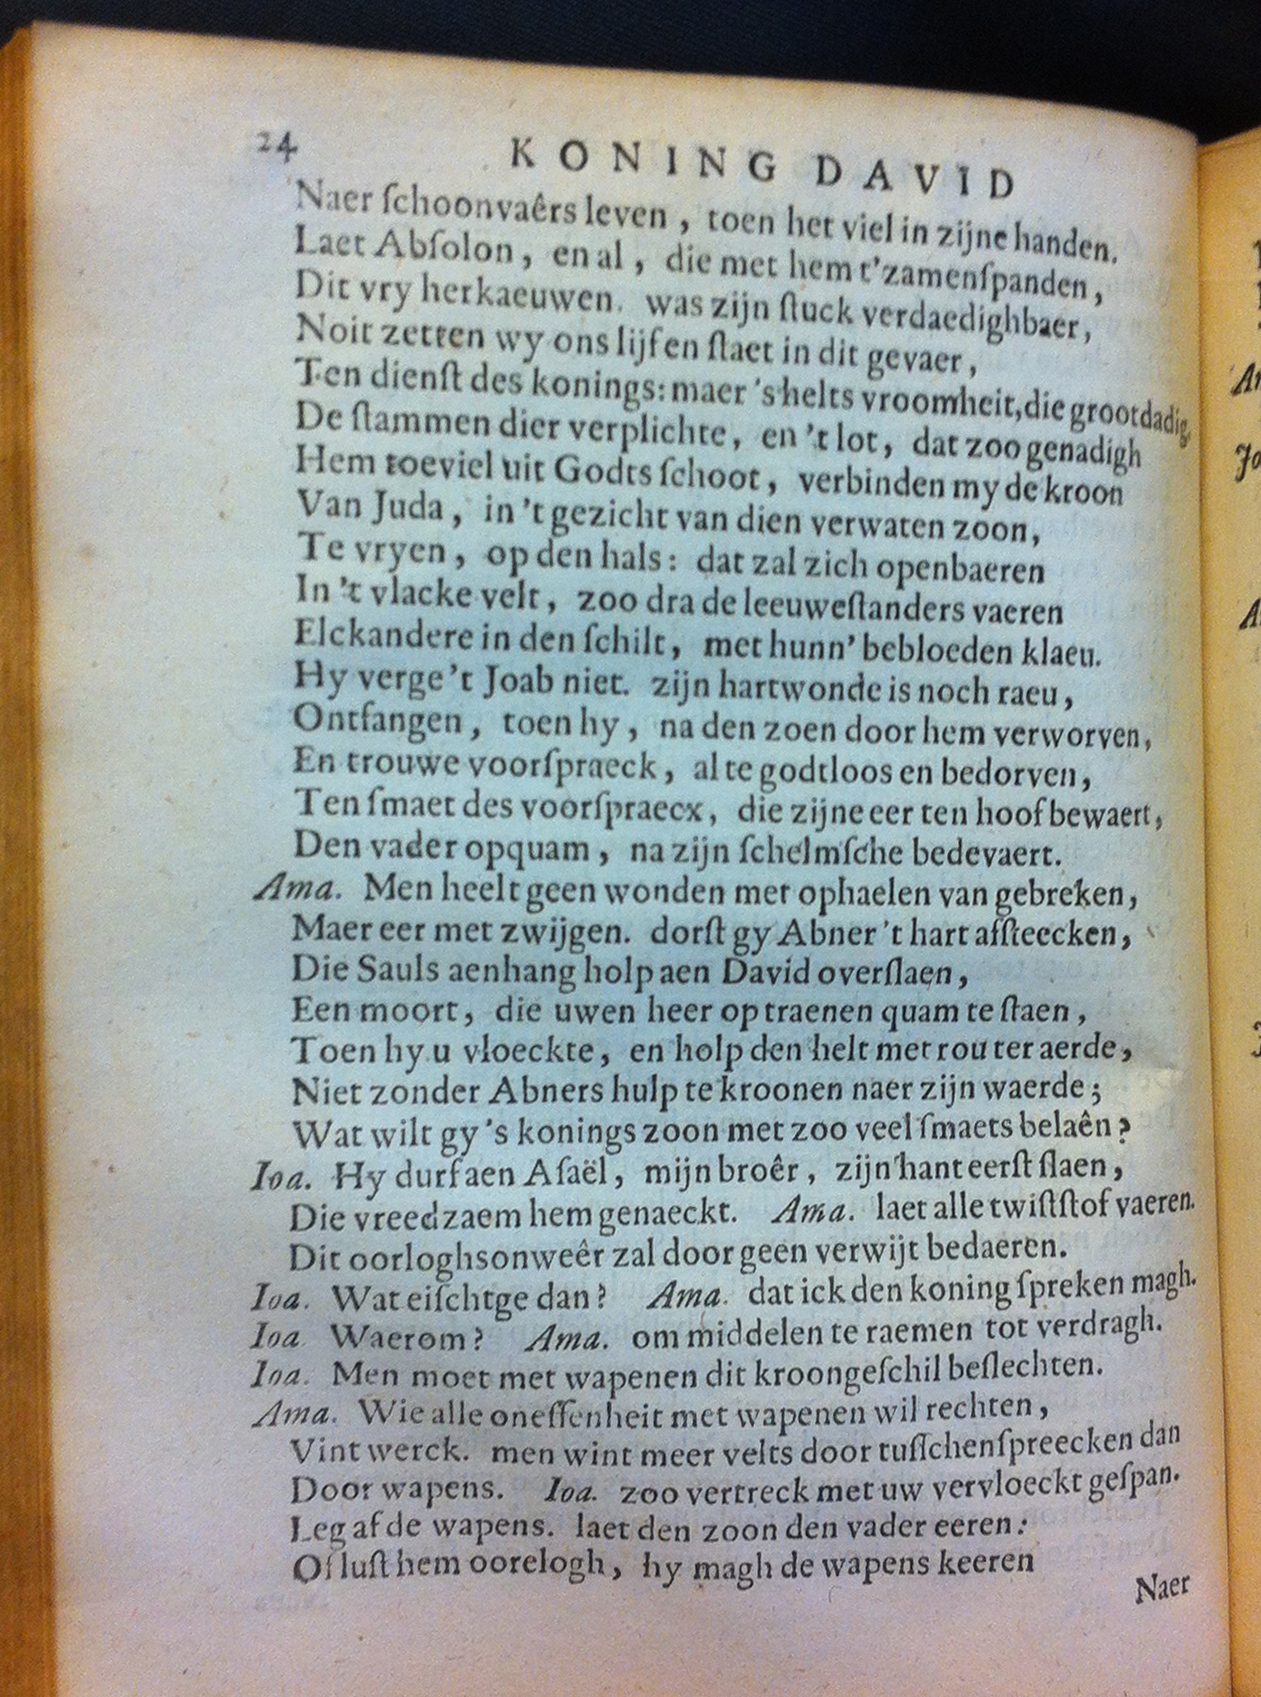 24 KONING DAVID
Naer ſchoonvaêrs leven, toen het viel in zijne handen.
Laet Abſolon, en al, die met hem t'zamenſpanden,
Dit vry herkaeuwen. was zijn ſtuck verdaedighbaer,
Noit zetten wy ons lijf en ſtaet in dit gevaer,
Ten dienſt des konings: maer 's helts vroomheit, die grootdadig,
De ſtammen dier verplichte, en 't lot, dat zoo genadigh
Hem toeviel uit Godts ſchoot, verbinden my de kroon
Van Juda, in 't gezicht van dien verwaten zoon,
Te vryen, op den hals: dat zal zich openbaeren
In 't vlacke velt, zoo dra de leeuweſtanders vaeren
Elckandere in den ſchilt, met hunn' bebloeden klaeu.
Hy verge 't Joab niet. zijn hartwonde is noch raeu,
Ontfangen, toen hy, na den zoen door hem verworven,
En trouwe voorſpraeck, al te godtloos en bedorven,
Ten ſmaet des voorſpraecx, die zijne eer ten hoof bewaert,
Den vader opquam, na zijn ſchelmſche bedevaert.
Ama. Men heelt geen wonden met ophaelen van gebreken,
Maer eer met zwijgen. dorſt gy Abner 't hart afſteecken,
Die Sauls aenhang holp aen David overſlaen,
Een moort, die uwen heer op traenen quam te ſtaen,
Toen hy u vloeckte, en holp den helt met rou ter aerde,
Niet zonder Abners hulp te kroonen naer zijn waerde;
Wat wilt gy 's konings zoon met zoo veel ſmaets belaên?
Ioa. Hy durf aen Aſaël, mijn broêr, zijn hant eerſt ſlaen,
Die vreedzaem hem genaeckt. Ama. laet alle twiſtſtof vaeren.
Dit oorloghsonweêr zal door geen verwijt bedaeren.
Ioa. Wat eiſchtge dan? Ama. dat ick den koning ſpreken magh.
Ioa. Waerom? Ama. om middelen te raemen tot verdragh.
Ioa. Men moet met wapenen dit kroongeſchil beſlechten.
Ama. Wie alle oneffenheit met wapenen wil rechten,
Vint werck. men wint meer velts door tuſſchenſpreecken dan
Door wapens. Ioa. zoo vertreck met uw vervloeckt geſpan.
Leg af de wapens. laet den zoon den vader eeren:
Of luſt hem oorelogh, hy magh de wapens keeren
Naer